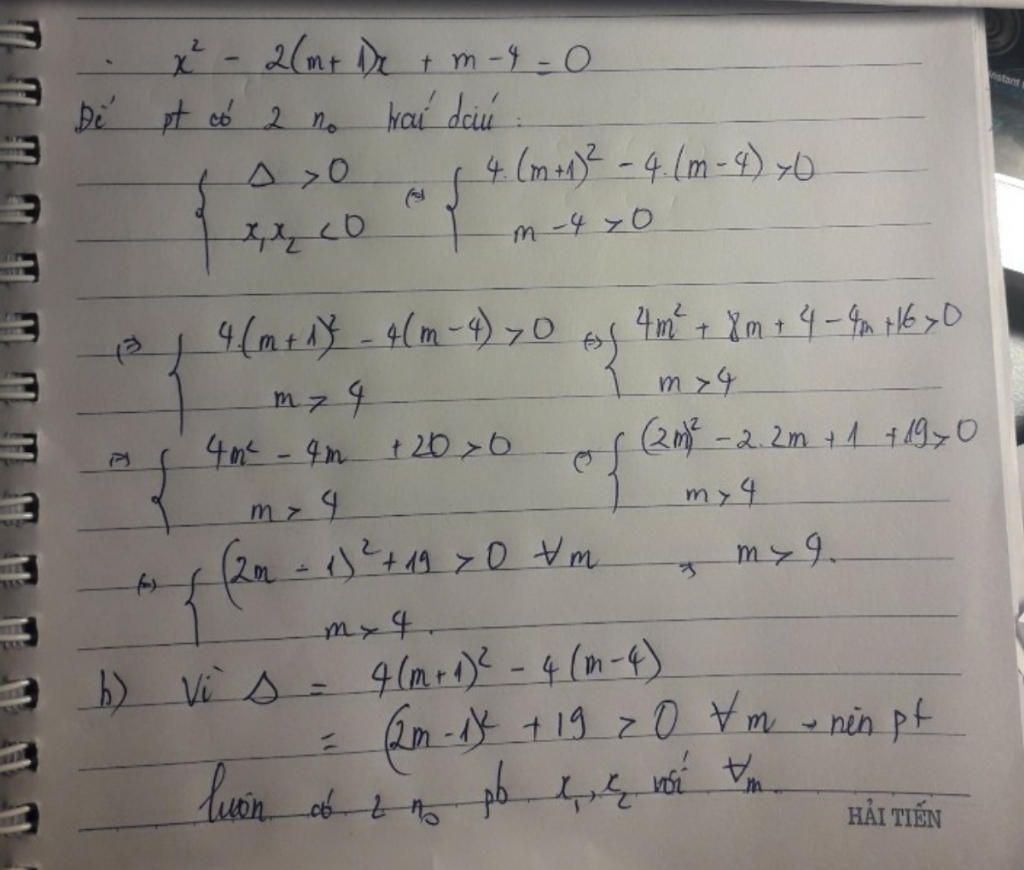 x² - 2(m+1)x + m-4 = 0
Để pt có 2 n₀ trái dấu :
{ Δ > 0 (⇔) { 4.(m+1)² - 4.(m-4) > 0
x₁x₂ < 0 m - 4 > 0
(⇒) { 4.(m+1)² - 4(m-4) > 0 (⇔) { 4m² + 8m + 4 - 4m + 16 > 0
m > 4 m > 4
(⇒) { 4m² - 4m + 20 > 0 (⇔) { (2m)² - 2.2m + 1 + 19 > 0
m > 4 m > 4
(⇔) { (2m - 1)² + 19 > 0 ∀m ⇒ m > 4.
m > 4.
b) Vì Δ = 4(m+1)² - 4(m-4)
= (2m-1)² + 19 > 0 ∀m → nên pt
luôn có 2 n₀ pb x₁, x₂ với ∀m
HẢI TIẾN